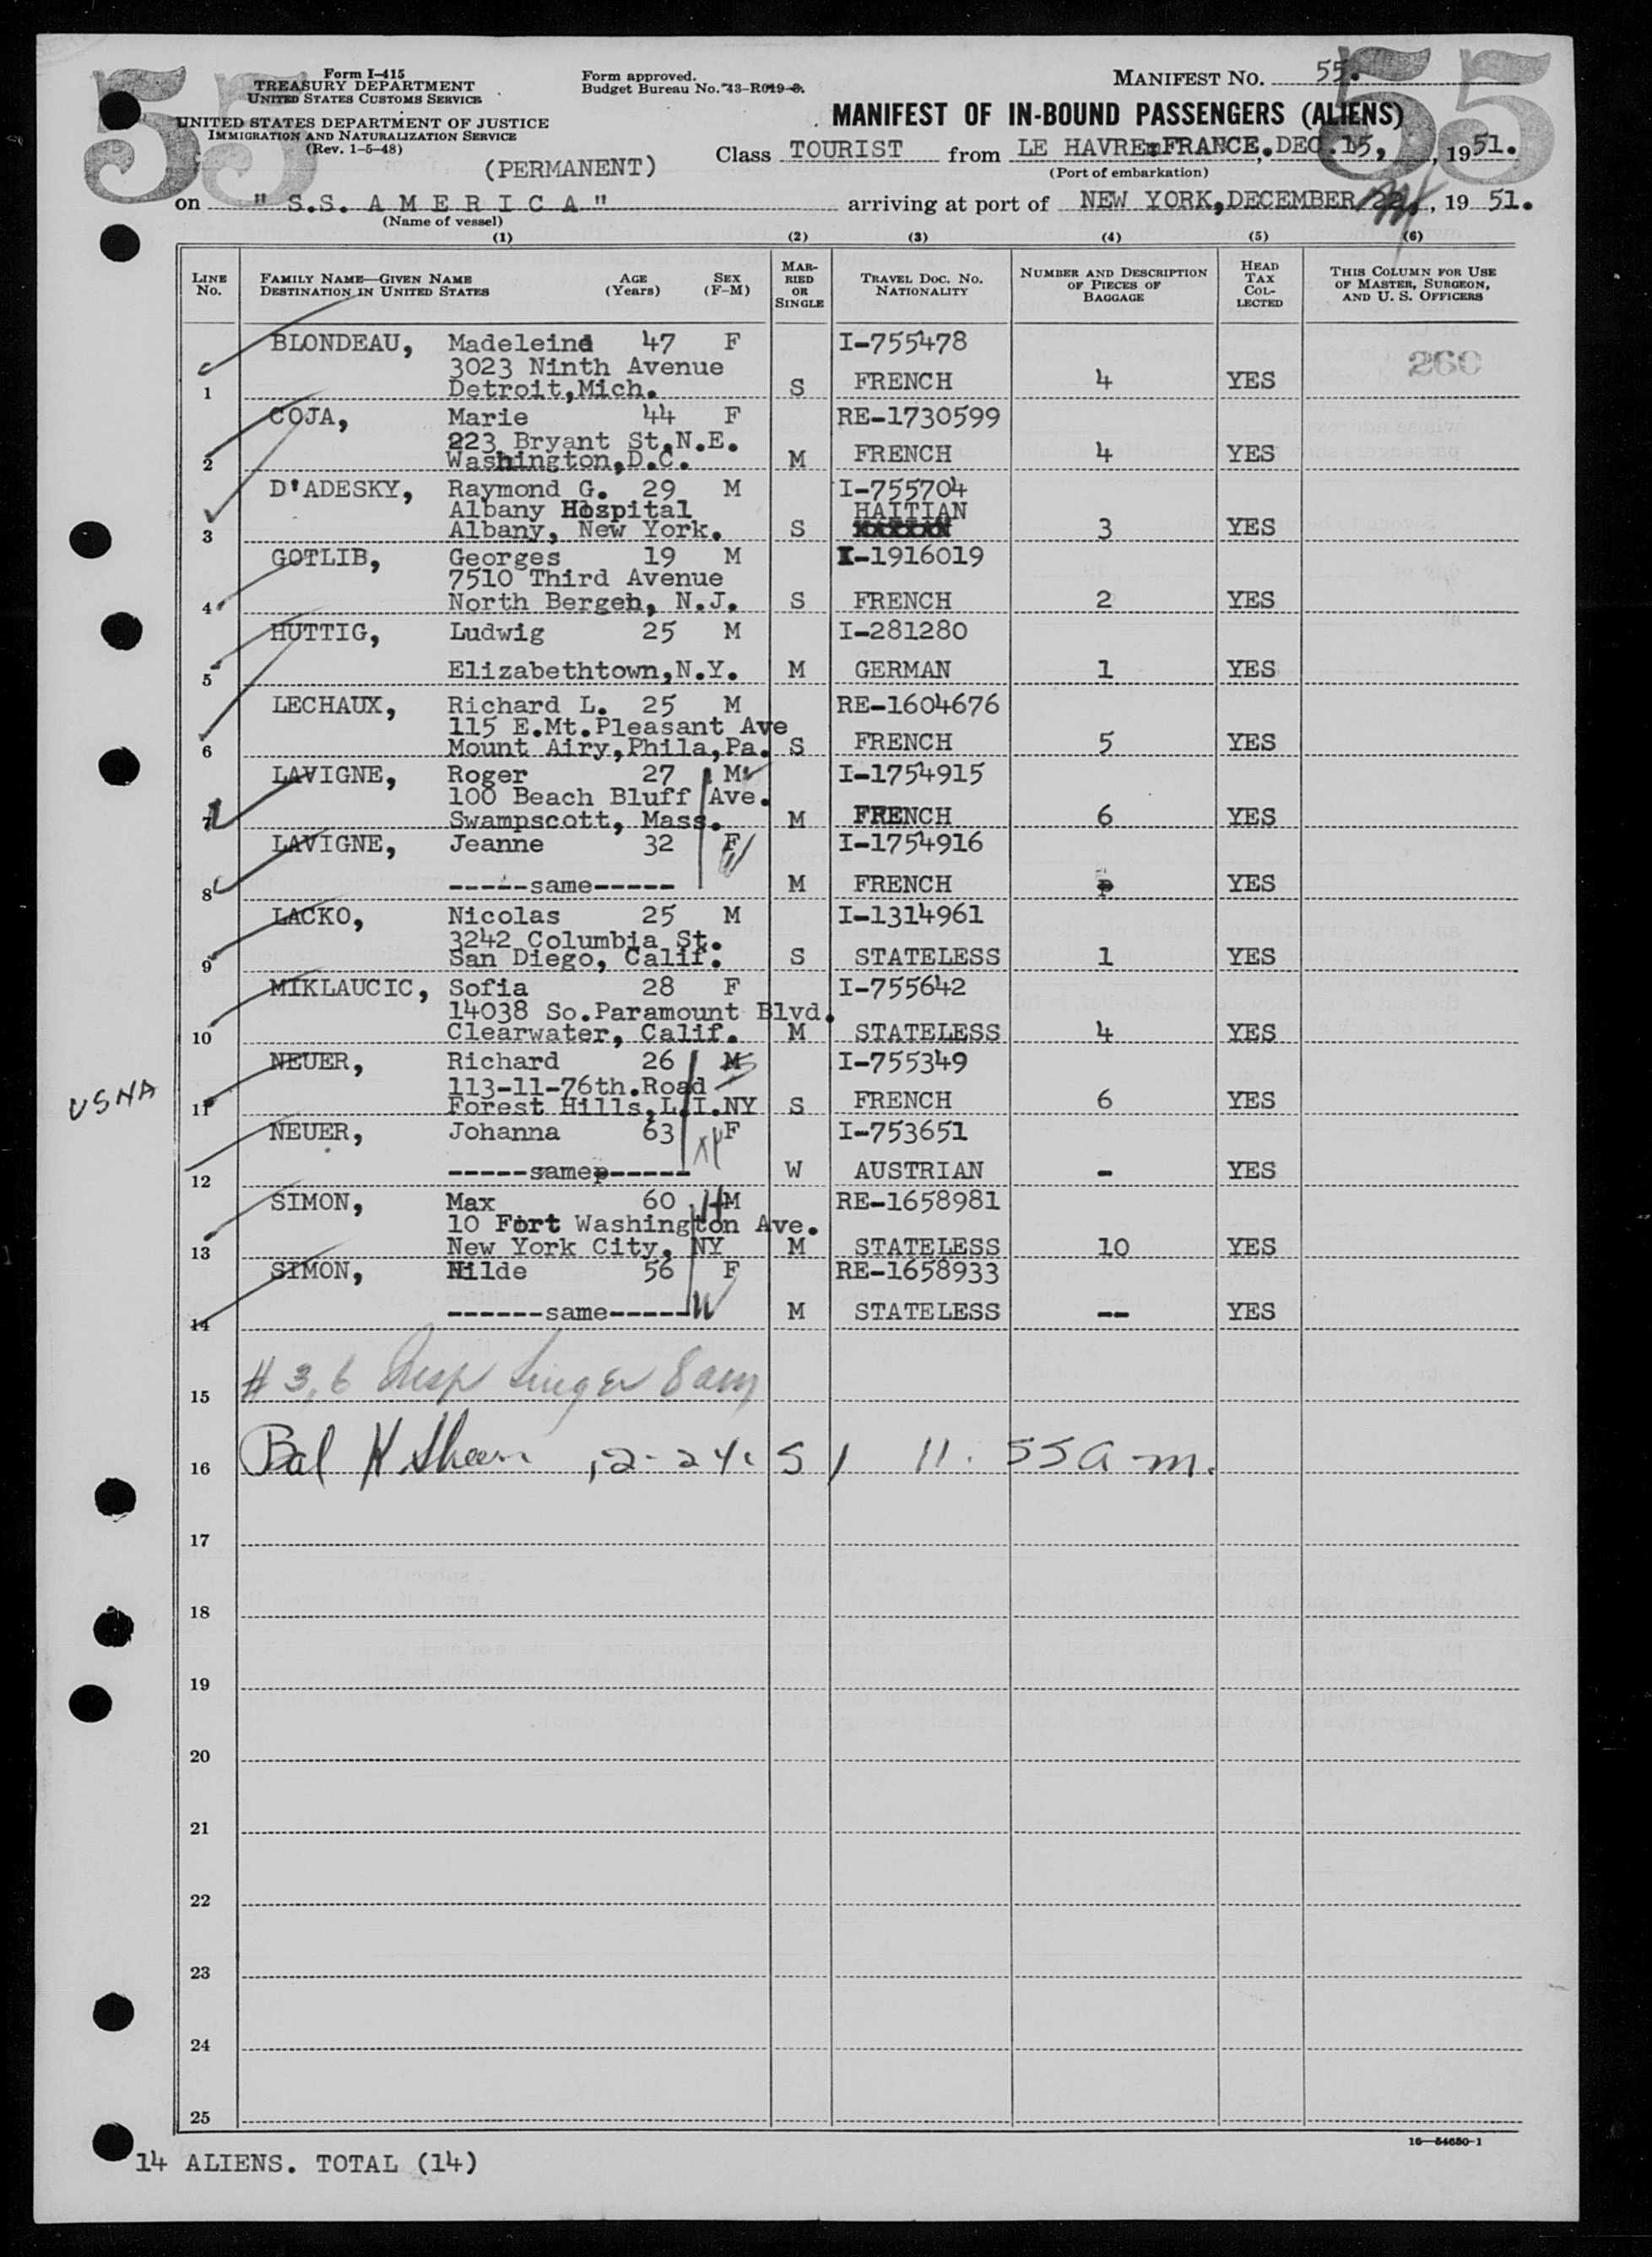 55 55
Form I-415
TREASURY DEPARTMENT
UNITED STATES CUSTOMS SERVICE
UNITED STATES DEPARTMENT OF JUSTICE
IMMIGRATION AND NATURALIZATION SERVICE
(Rev. 1-5-48)
Form approved.
Budget Bureau No. 43-R019-3.
MANIFEST NO. 55.
MANIFEST OF IN-BOUND PASSENGERS (ALIENS)
(PERMANENT)
Class TOURIST from LE HAVRE FRANCE. DEC. 15, , 19 51.
(Port of embarkation)
on " S.S. A M E R I C A " arriving at port of NEW YORK, DECEMBER 22, , 19 51.
(Name of vessel)
(1) (2) (3) (4) (5) (6)
LINE No. FAMILY NAME—GIVEN NAME DESTINATION IN UNITED STATES AGE (Years) SEX (F-M) MARRIED OR SINGLE TRAVEL DOC. NO. NATIONALITY NUMBER AND DESCRIPTION OF PIECES OF BAGGAGE HEAD TAX COLLECTED THIS COLUMN FOR USE OF MASTER, SURGEON, AND U. S. OFFICERS
BLONDEAU, Madeleine 47 F I-755478
3023 Ninth Avenue
1 Detroit, Mich. S FRENCH 4 YES
COJA, Marie 44 F RE-1730599
223 Bryant St, N.E.
2 Washington, D.C. M FRENCH 4 YES
D'ADESKY, Raymond G. 29 M I-755704
Albany Hospital HAITIAN
3 Albany, New York. S 3 YES
GOTLIB, Georges 19 M I-1916019
7510 Third Avenue
4 North Bergen, N.J. S FRENCH 2 YES
HUTTIG, Ludwig 25 M I-281280
5 Elizabethtown, N.Y. M GERMAN 1 YES
LECHAUX, Richard L. 25 M RE-1604676
115 E.Mt.Pleasant Ave
6 Mount Airy, Phila, Pa. S FRENCH 5 YES
LAVIGNE, Roger 27 M I-1754915
100 Beach Bluff Ave.
7 Swampscott, Mass. M FRENCH 6 YES
LAVIGNE, Jeanne 32 F I-1754916
8 -----same----- M FRENCH YES
LACKO, Nicolas 25 M I-1314961
3242 Columbia St.
9 San Diego, Calif. S STATELESS 1 YES
MIKLAUCIC, Sofia 28 F I-755642
14038 So.Paramount Blvd.
10 Clearwater, Calif. M STATELESS 4 YES
NEUER, Richard 26 M I-755349
113-11-76th.Road
USNA 11 Forest Hills, L.I.NY S FRENCH 6 YES
NEUER, Johanna 63 F I-753651
12 -----same----- W AUSTRIAN - YES
SIMON, Max 60 H M RE-1658981
10 Fort Washington Ave.
13 New York City, NY M STATELESS 10 YES
SIMON, Hilde 56 F RE-1658933
14 ------same----- W M STATELESS -- YES
15 # 3, 6 8 am
16 Bal 12-24-51 11.55 a.m.
17
18
19
20
21
22
23
24
25
16—54650-1
14 ALIENS. TOTAL (14)